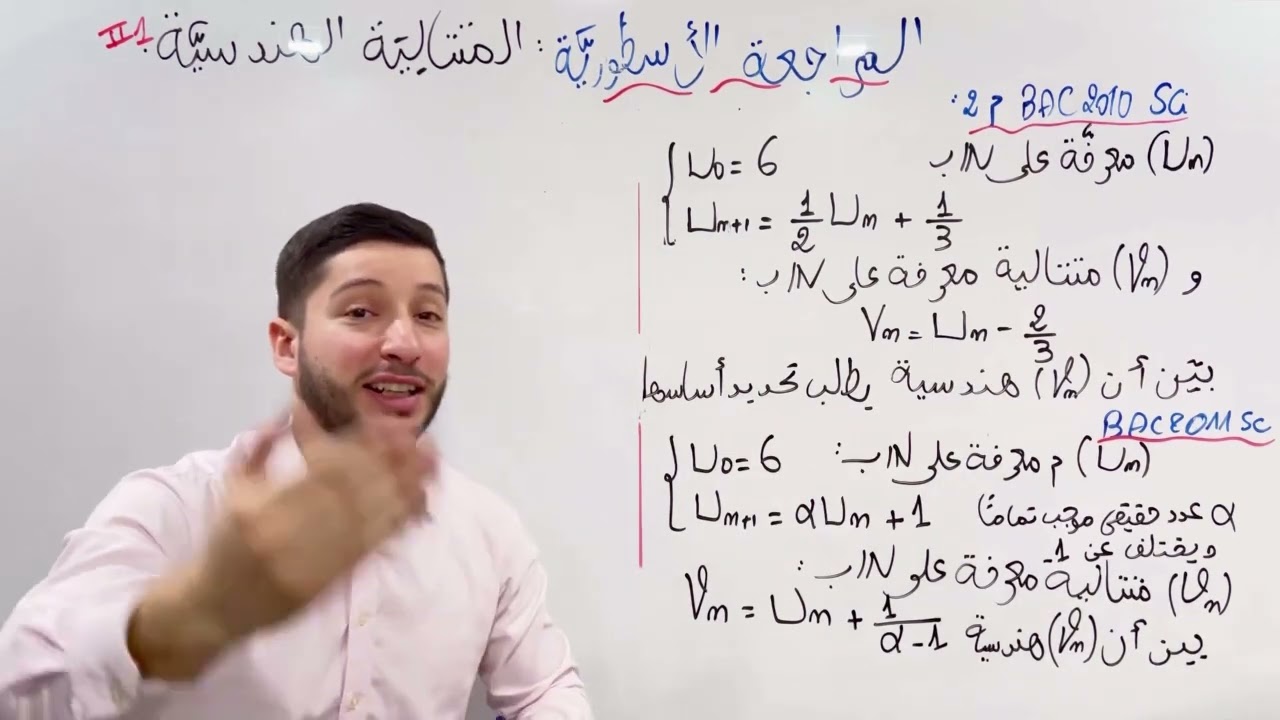 المراجعة الأسطوريّة : المتتاليّة الهندسيّة II1
BAC 2010 Sci م 2 :
(Un) معرفّة على IN بـ
U0 = 6
Un+1 = 1/2 Un + 1/3
و (Vn) متتالية معرفة على IN بـ :
Vn = Un - 2/3
بيّن أن (Vn) هندسية يطلب تحديد أساسها
BAC 2011 Sc
(Un) م معرفة على IN بـ :
U0 = 6
Un+1 = αUn + 1
α عدد حقيقي موجب تمامًا
و يختلف عن 1
(Vn) متتالية معرفة على IN بـ :
Vn = Un + 1/(α-1)
بين أن (Vn) هندسية